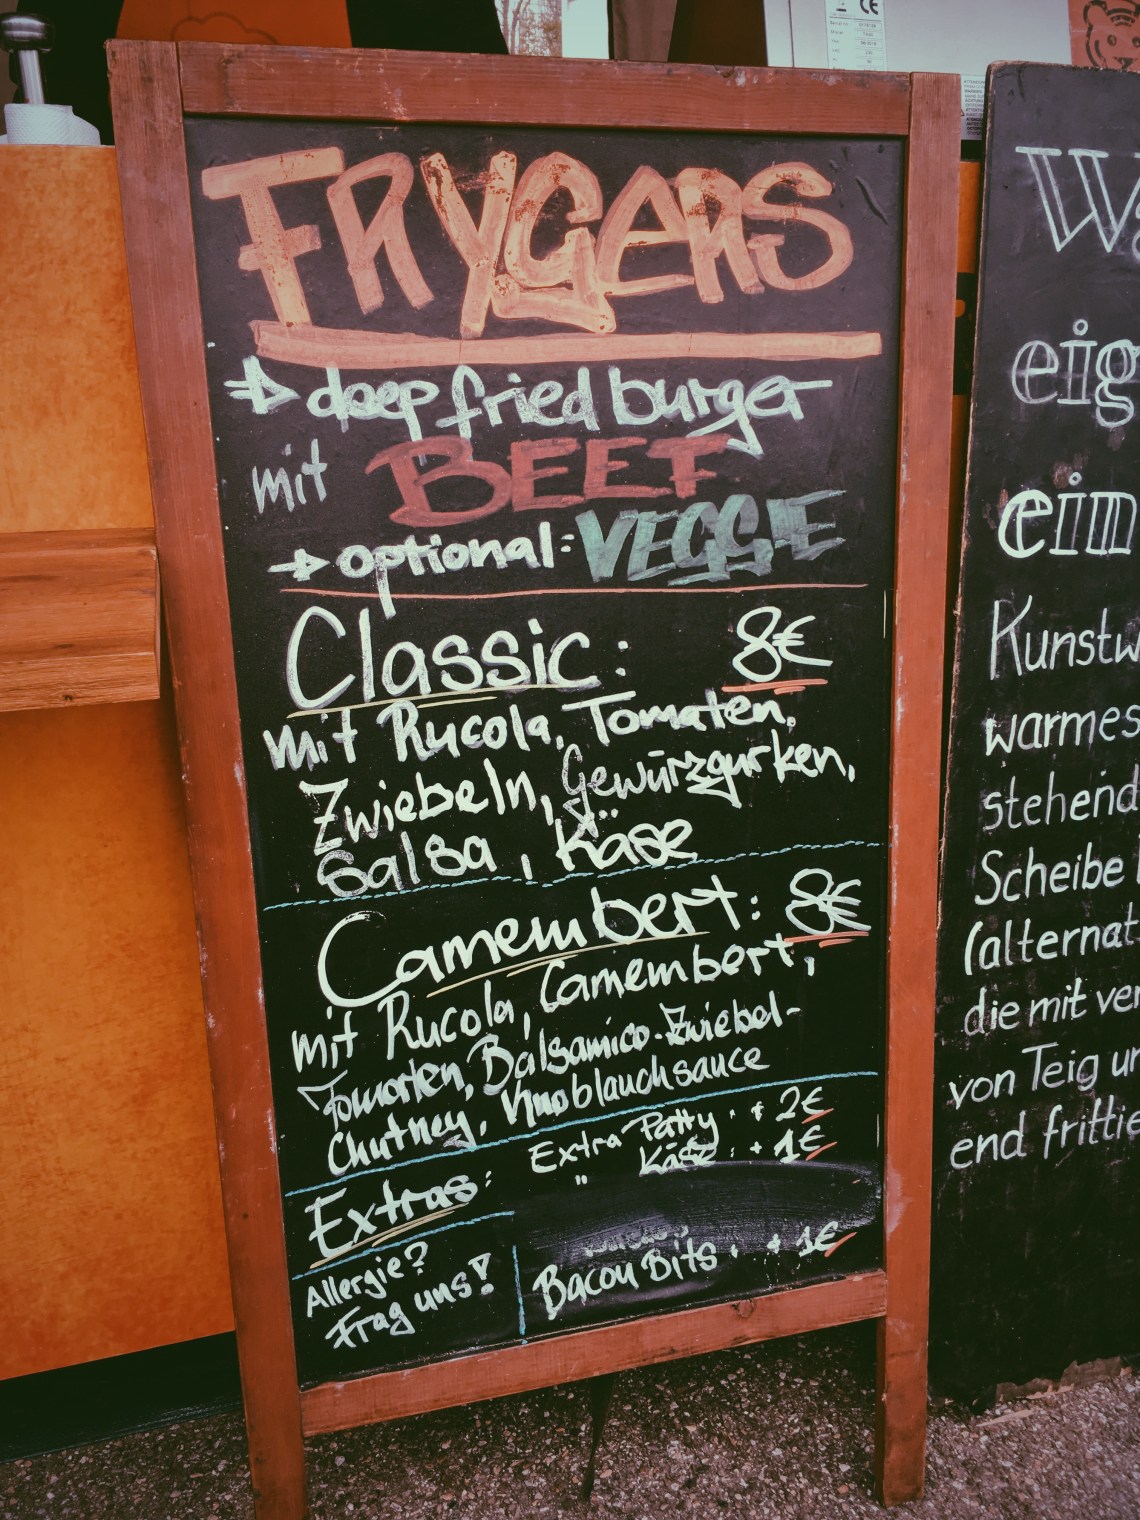 FRYGERS
→ deep fried burger
mit BEEF
→ optional: VEGGIE
Classic: 8€
mit Rucola, Tomaten,
Zwiebeln, Gewürzgurken,
Salsa, Käse
Camembert: 8€
mit Rucola, Camembert,
Tomaten, Balsamico-Zwiebel-
Chutney, Knoblauchsauce
Extras: Extra Patty: + 2€
" Käse: + 1€
Bacon Bits: + 1€
Allergie?
Frag uns!
eig
ein
Kunstw
warmes
stehend
Scheibe
(alternat
die mit ver
von Teig un
end frittie
CE